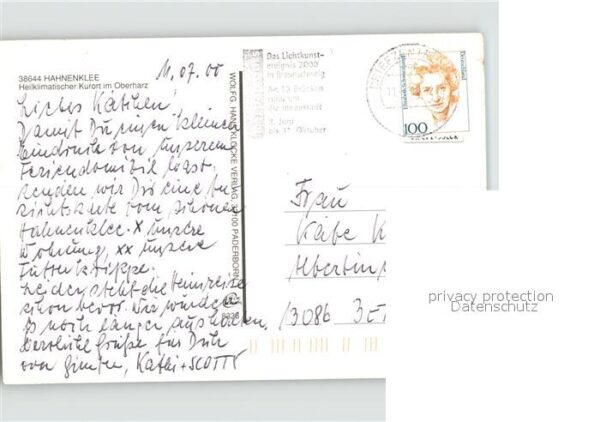 38644 HAHNENKLEE
Heilklimatischer Kurort im Oberharz
11.07.00
Liebes Käthchen!
Damit Du einen kleinen
Eindruck von unserem
Feriendomizil hast,
senden wir Dir eine
vom schönen
Hahnenklee. X unsere
Wohnung, XX unsere
Futterkrippe.
Leider steht die Heimreise
schon bevor. Wir würden
es noch länger aushalten.
Herzliche Grüße für Dich
von Günter, Kathi + SCOTTY
WOLFG. HANS KLOCKE VERLAG, 33100 PADERBORN
Das Lichtkunst-
ereignis 2000
in Braunschweig
An 13 Brücken
rund um
die Innenstadt
3. Juni
bis 31. Oktober
Deutschland
100
Frau
Käthe K
13086
privacy protection
Datenschutz